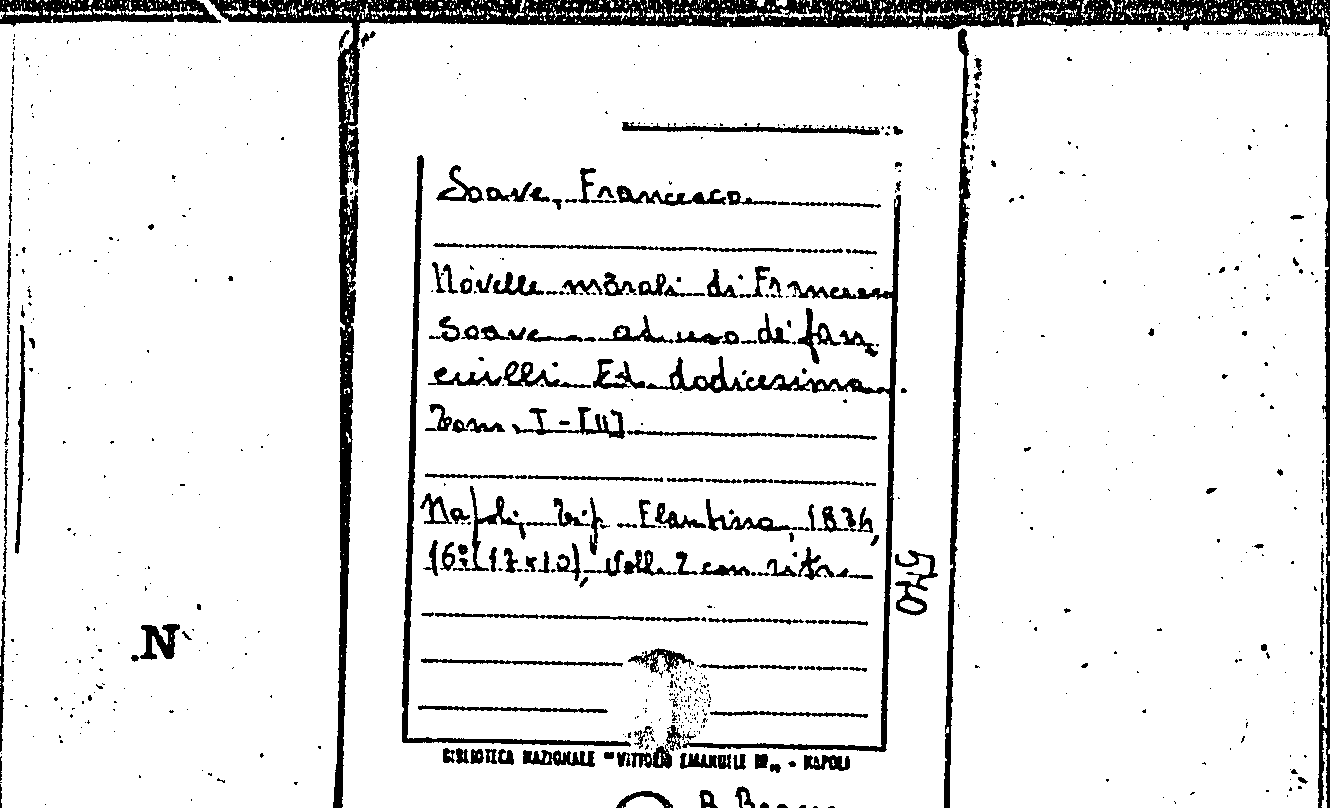 Soave, Francesco.
Novelle morali di Francesco
Soave ad uso de' fan-
ciulli. Ed. dodicesima.
Tom. I-[II]
Napoli, Tip. Flautina,
16º (17x10), Voll. 2 con ritr.
540
.N
BIBLIOTECA NAZIONALE "VITTORIO EMANUELE III„ - NAPOLI
B.